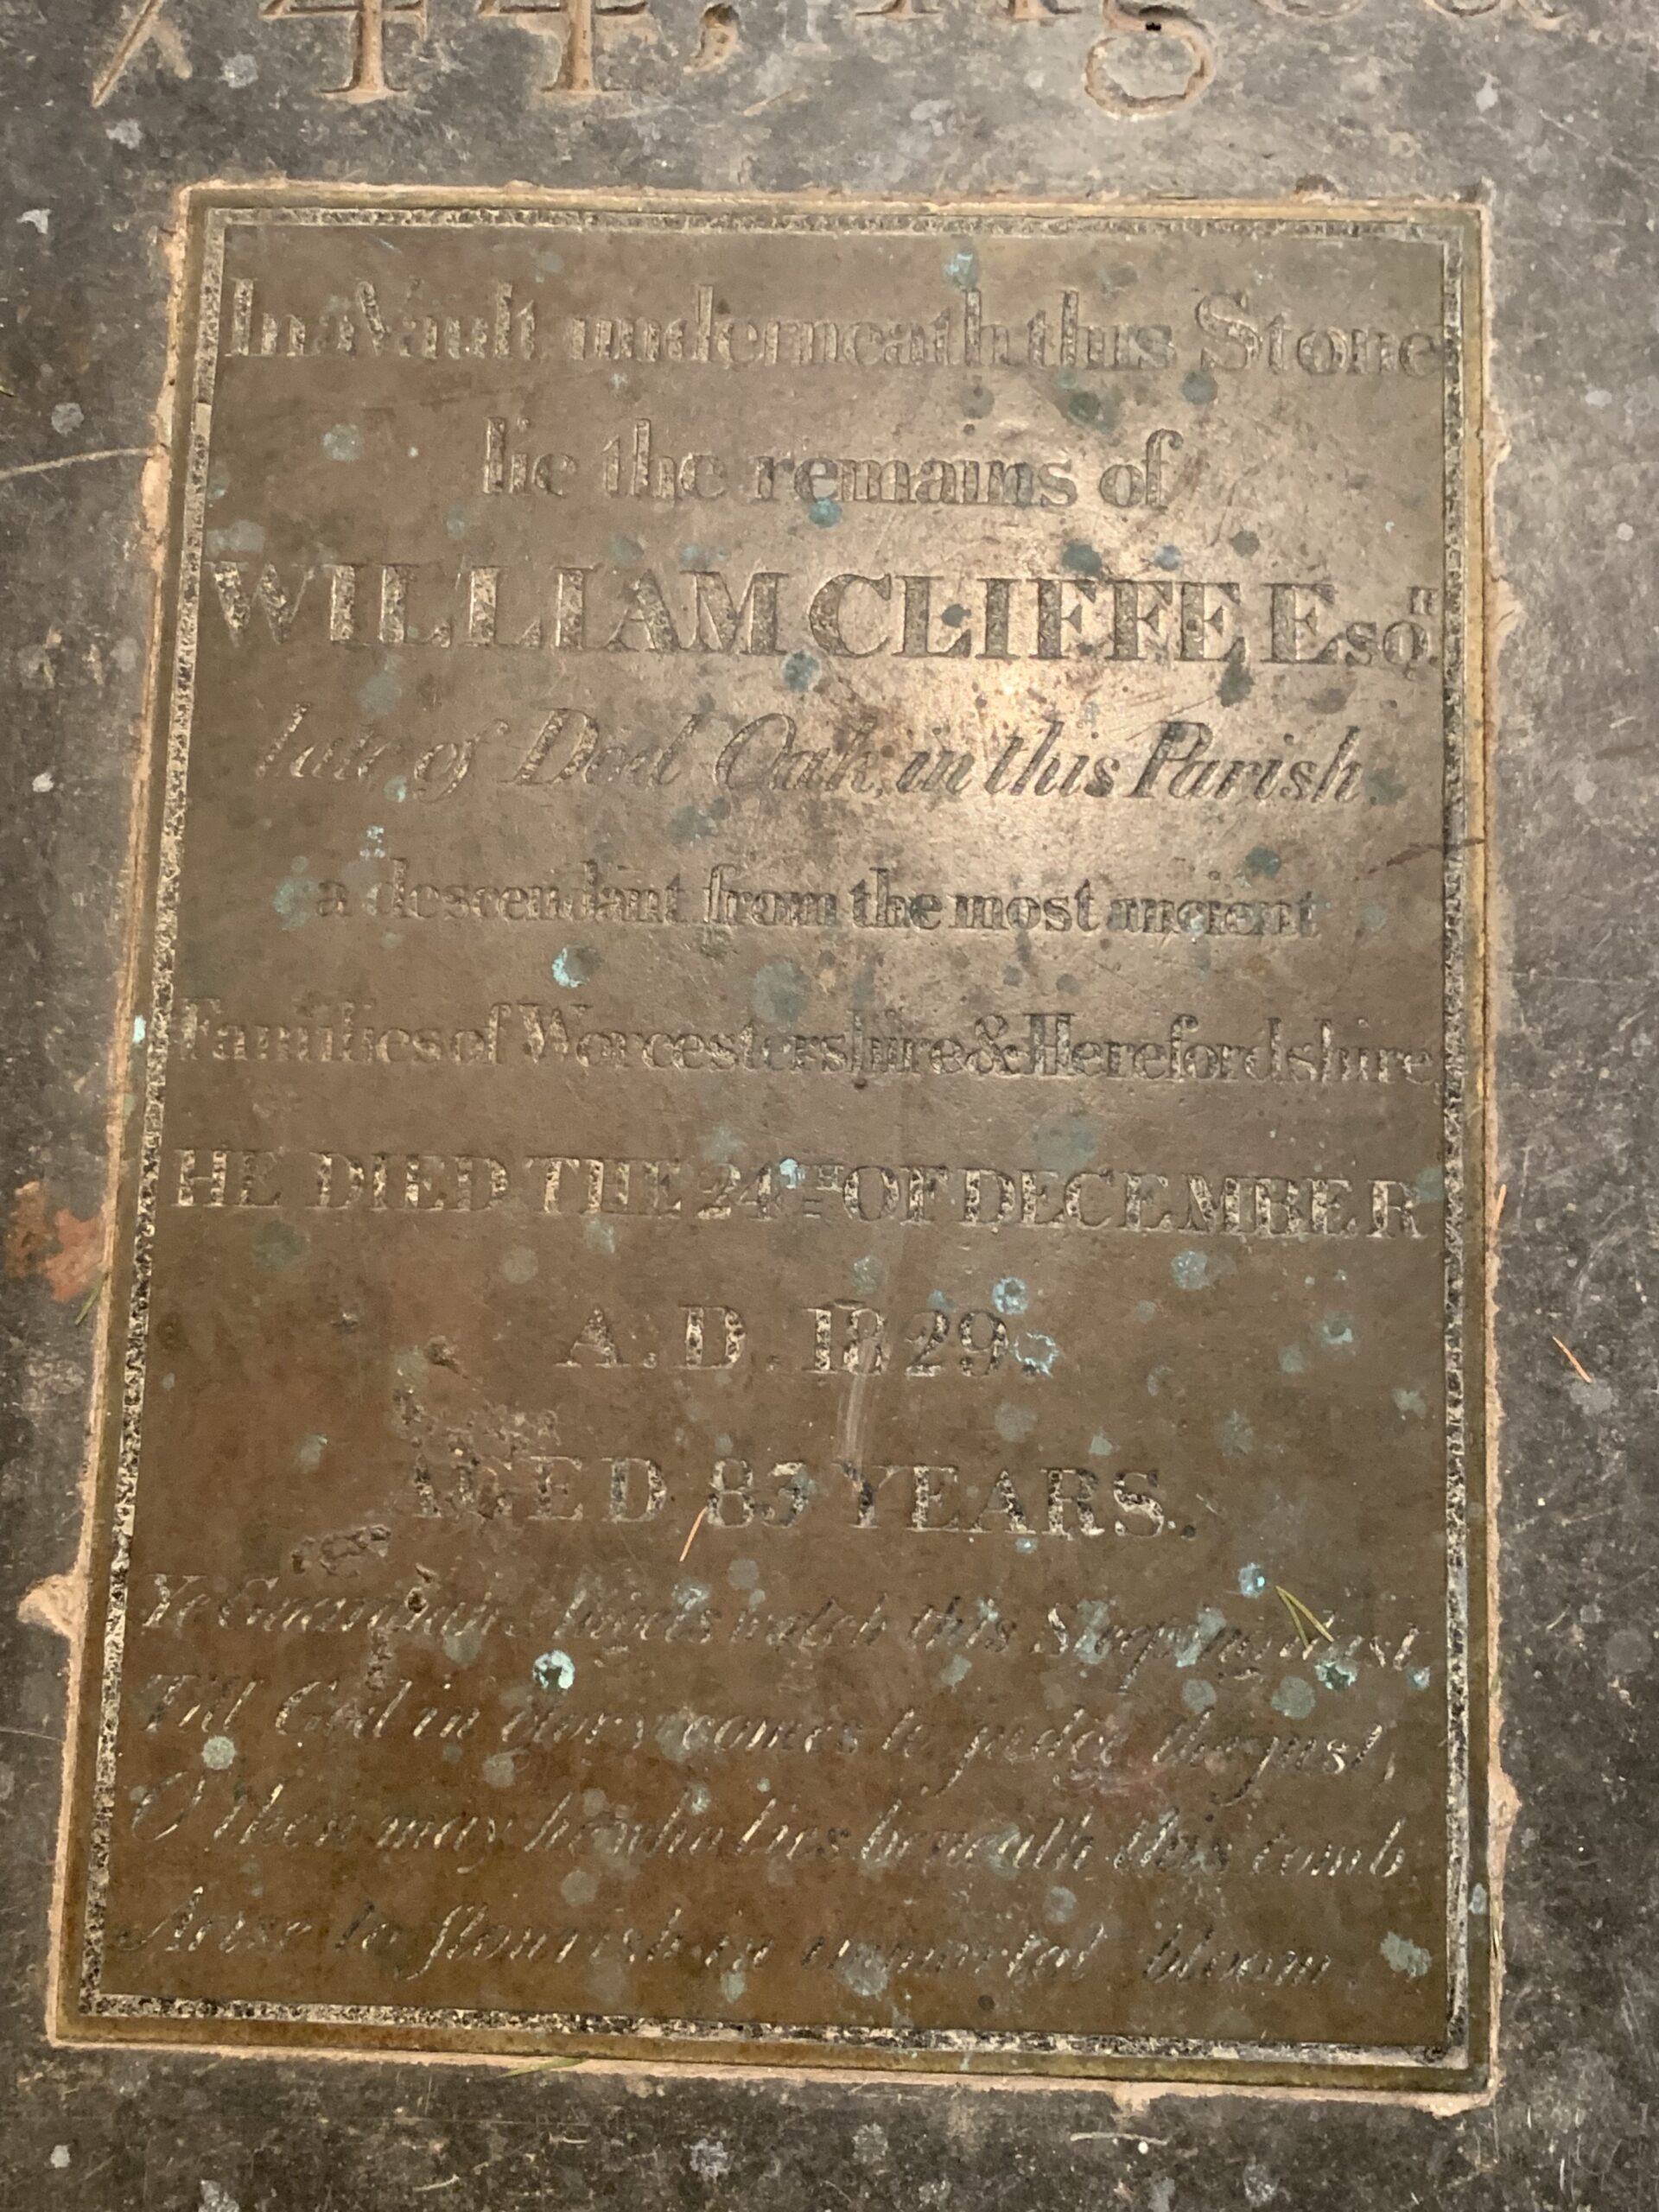 744, Aged
In a Vault underneath this Stone
lie the remains of
WILLIAM CLIFFE ESQ.R
late of Dod Oak, in this Parish
a descendant from the most ancient
Families of Worcestershire & Herefordshire
HE DIED THE 24TH OF DECEMBER
A.D. 1829.
AGED 83 YEARS.
Ye Guardian Angels watch this Sleeping dust,
Till God in glory comes to judge the just,
O then may he who lies beneath this tomb
Arise to flourish in immortal bloom.